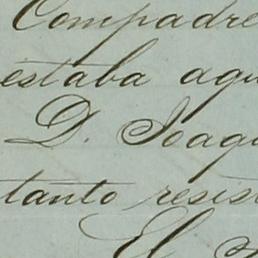 Compadre
estaba aqu
D. Joaqu
tanto resis
El